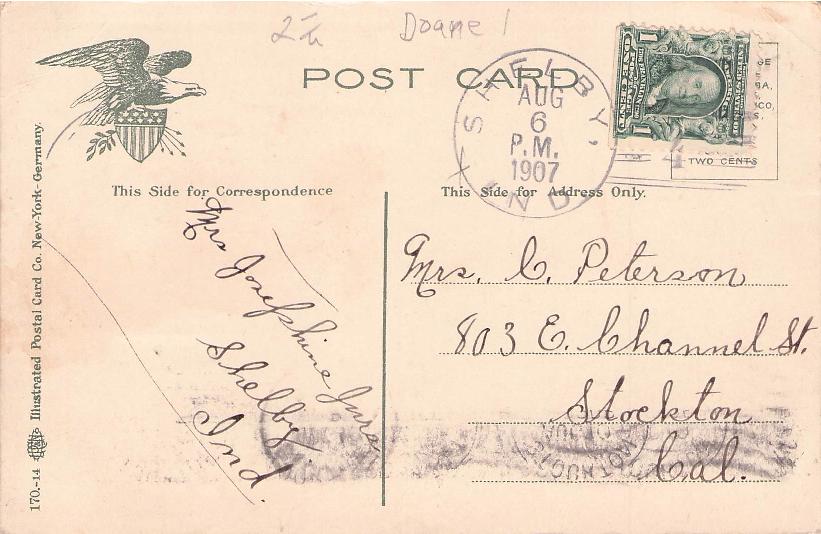 Doane 1
POST CARD
SHELBY,
IND.
AUG
6
P.M.
1907
4
TWO CENTS
This Side for Correspondence
This Side for Address Only.
Mrs Josephine
Shelby
Ind.
Mrs. C. Peterson
803 E. Channel St.
Stockton
Cal.
170.-14 Illustrated Postal Card Co. New-York-Germany.